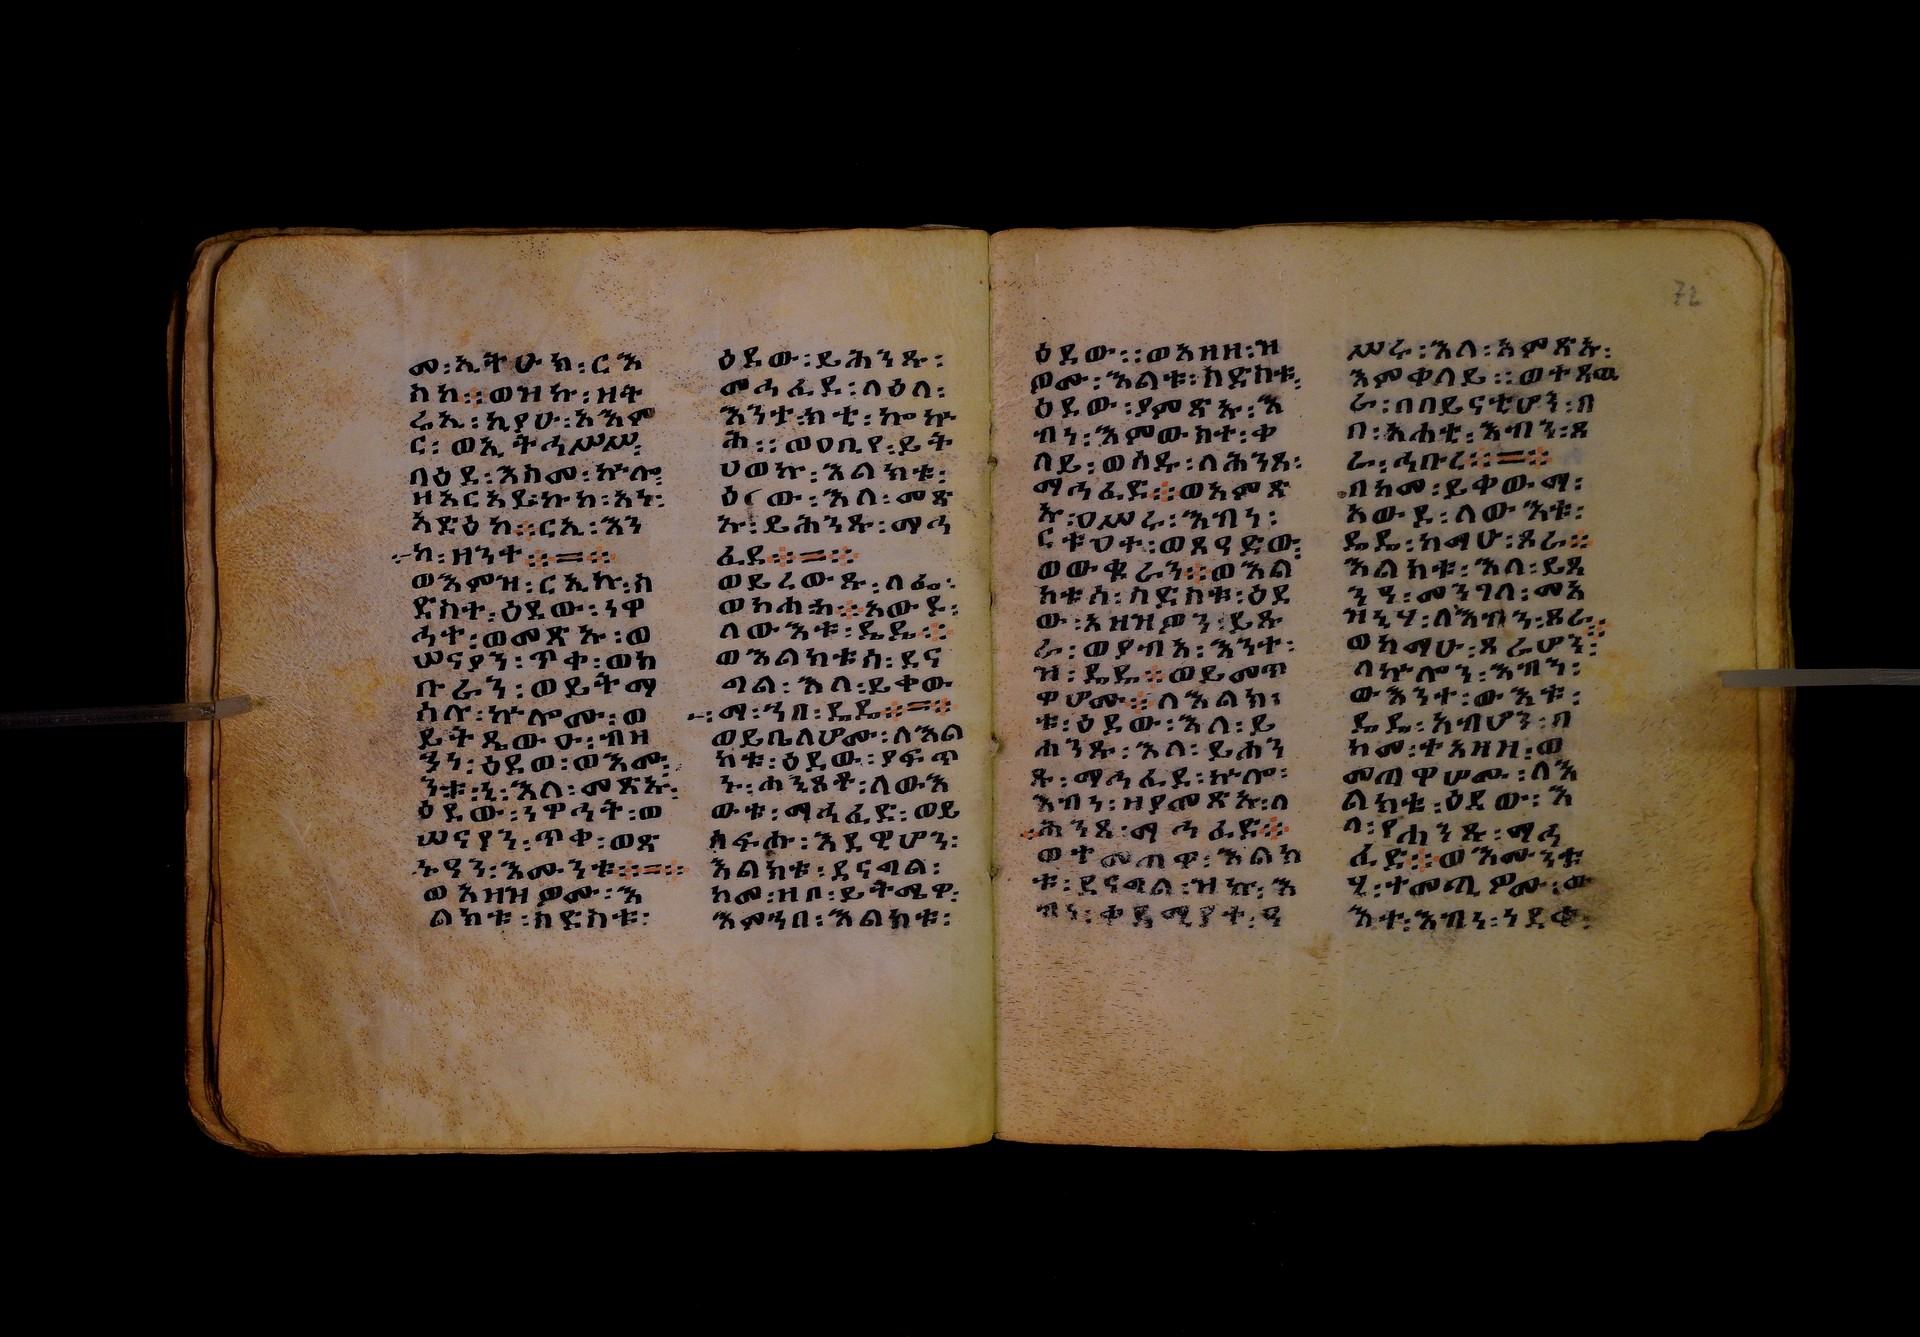 መ፡ኢትሁክ፡ርእ
ስከ፨ወዝኩ፡ዘት
ሬኢ፡ኢያሁ፡አእም
ር፡ወኢትሓሥሥ፡
በዕደ፡እስመ፡ኵሎ
ዘአርአይኩከ፡አነ፡
አይድዕከ፨ርኢ፡እን
ከ፡ዘንተ፨=፨
ወእምዝ፡ርኢኩ፡ስ
ድስተ፡ዕደው፡ነዋ
ሓተ፡ወመጽኡ፡ወ
ሠናያን፡ጥቀ፡ወከ
ቡራን፡ወይትማ
ሰሉ፡ኵሎሙ፡ወ
ይትጼውዑ፡ብዘ
ኀን፡ዕደወ፡ወእሙ
ንቱ፡ኒ፡እለ፡መጽኡ፡
ዕደው፡ነዋኃት፡ወ
ሠናያን፡ጥቀ፡ወጽ
ኑዓን፡እሙንቱ፨=፨
ወአዘዝዎሙ፡እ
ልክቱ፡ስድስቱ፡
ዕደው፡ይሕንጹ፡
መሓፈደ፡ላዕለ፡
እንተ፡ክቲ፡ኰኵ
ሕ፡፡ወዐቢየ፡ድት
ሀወኩ፡እልክቱ፡
ዕደው፡እለ፡መጽ
ኡ፡ይሕንጹ፡ማሓ
ፈደ፨=፨
ወይረውጹ፡ለፌ፡
ወከሐከ፨አውደ፡
ለውእቱ፡ዴዴ፨
ወእልክቱሰ፡ደና
ግል፡እለ፡ይቀው
ማ፡ኀበ፡ዴዴ፨=፨
ወይቤለሆሙ፡ለእል
ክቱ፡ዕደው፡ያፍጥ
ኑ፡ሐንጾቶ፡ለውእ
ውቱ፡ማሓፈድ፡ወይ
ሰፍሑ፡እደዊሆን፡
እልክቱ፡ደናግል፡
ከመ፡ዘበ፡ይትሜዋ፡
እምኀበ፡እልክቱ፡
ዕደው፡፡ወአዘዘ፡ዝ
ወሙ፡እልቱ፡ስድስቱ፡
ዕደው፡ያምጽኡ፡እ
ብነ፡እምውስተ፡ቀ
ላይ፡ወሰዱ፡ለሕንጻ፡
ማሓፈድ፨ወአምጽ
ኡ፡ዐሥሩ፡እብነ፡
ርቱዐተ፡ወጸዓድው፡
ወውቁራን፨ወእል
ክቱሰ፡ስድስቱ፡ዕደ
ው፡አዘዝዎን፡ይጹ
ራ፡ወያብእ፡እንተ፡
ዝ፡ዴዴ፨ወይመጥ
ዋሆሙ፨ለእልክ፡
ቱ፡ዕደው፡እለ፡ይ
ሐንጹ፡እለ፡ይሕን
ጹ፡ማሓፈደ፡ኵሎ፡
እብን፡ዘያመጽኡ፡ለ
ሕንጻ፡ማሓፈድ፨
ወተመጠዋ፡እልክ
ቱ፡ደናግል፡ዝኩ፡እ
ብነ፡ቀዳሚያተ፡ዓ
ሥሩ፡እለ፡አምጽኡ፡
እምቀላይ፡፡ወተጻወ
ራ፡በበይናቲሆን፡በ
በ፡አሐቲ፡እብን፡ጾ
ራ፡ሓቡረ፨=፨
በከመ፡ይቀውማ፡
አውደ፡ለውእቱ፡
ዴዴ፡ከማሁ፡ጾራ፨
እልክቱ፡እለ፡ይጼ
ንዓ፡መንገለ፡መእ
ዝኒሃ፡ለእብን፡ጾራ፨
ወከማሁ፡ጾራሆን፡
ለኵሎን፡እብን፡
ውእንተ፡ውእቱ፡
ዴዴ፡አብሆን፡በ
ከመ፡ተአዘዘ፡ወ
መጠዋሆሙ፡ለእ
ልክቱ፡ዕደው፡እ
ለ፡የሐንጹ፡ማሓ
ፈድ፨ወእሙንቱ
ሂ፡ተመጢዎሙ፡ው
እተ፡እብነ፡ነደቁ፡
72